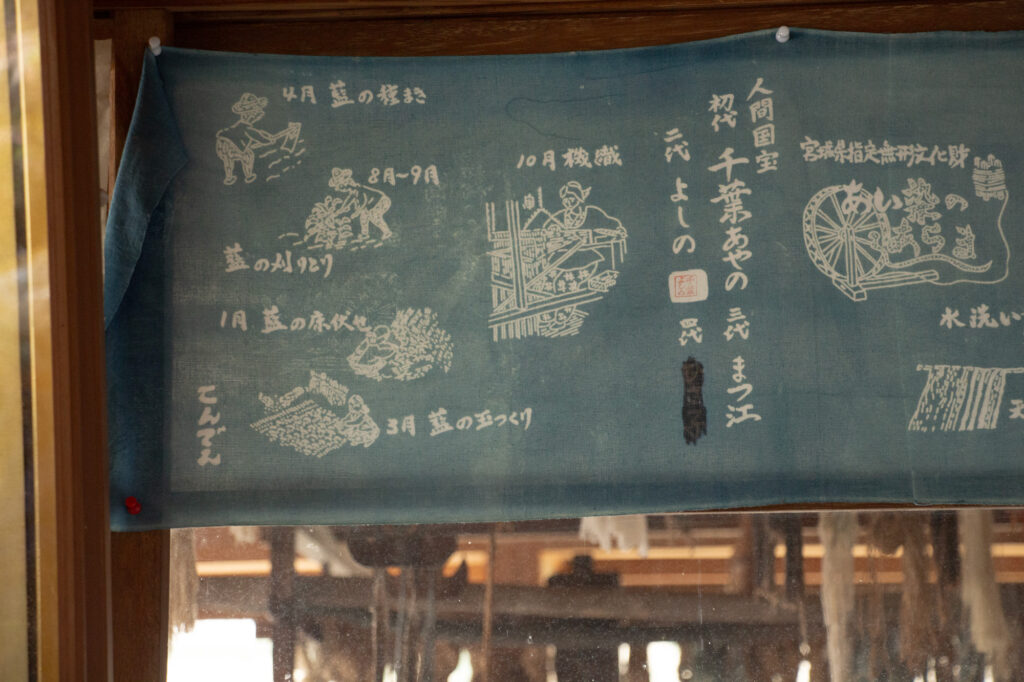 4月 藍の種まき
8月〜9月
藍の刈りとり
1月 藍の床伏せ
3月 藍の玉つくり
てんでん
10月 機織
人間国宝
初代 千葉あやの 三代 まつ江
二代 よしの 四代
宮城県指定無形文化財
あい染の
水洗い